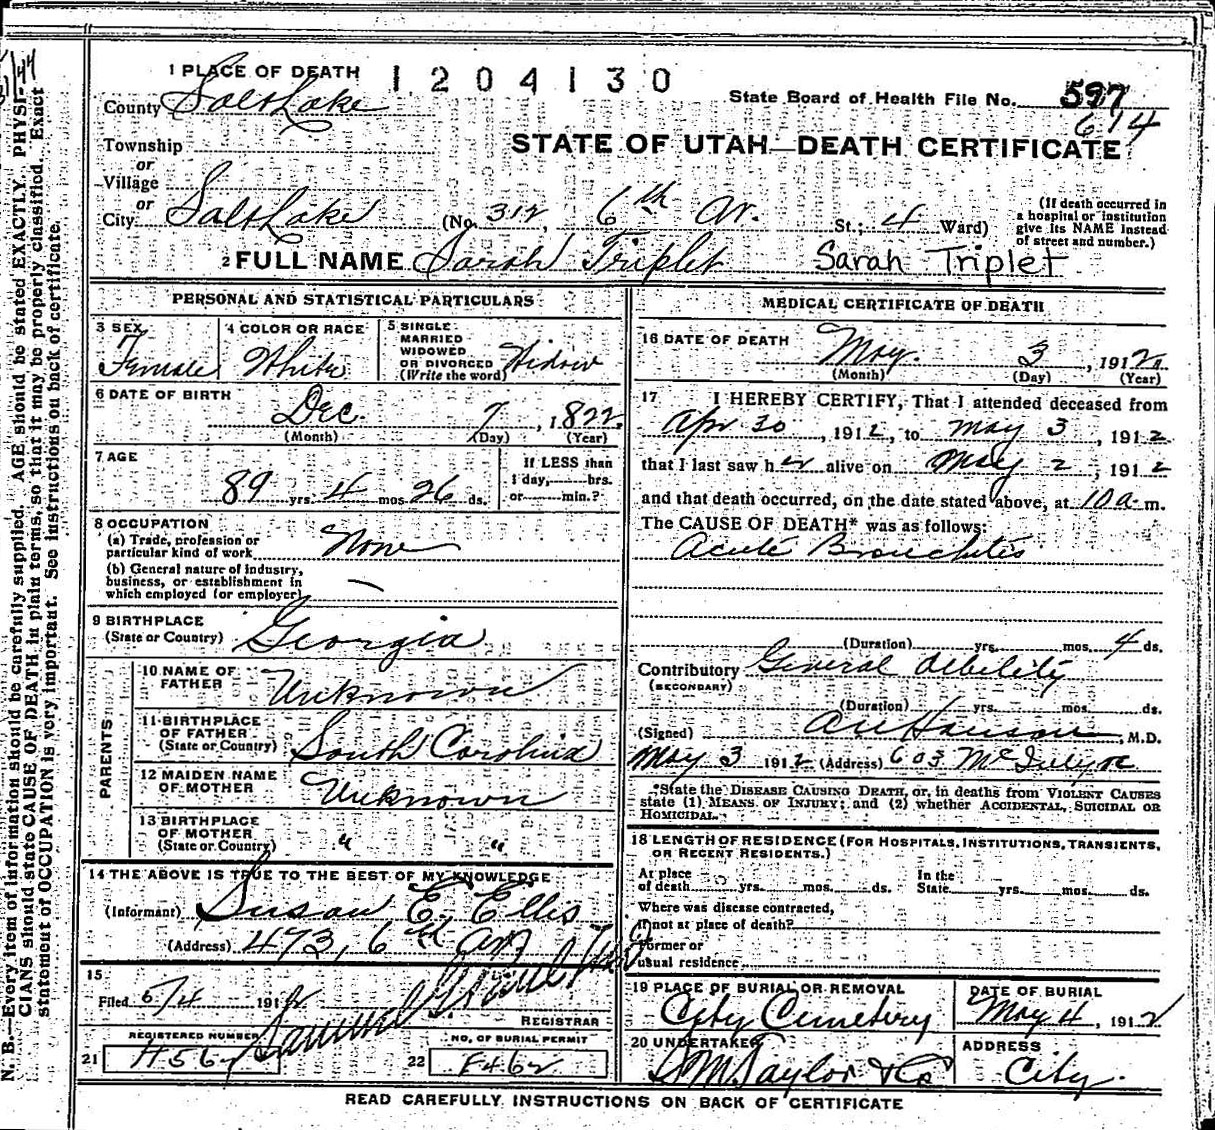 1 PLACE OF DEATH 1204130
County Salt Lake
State Board of Health File No. 597
614
Township
or
Village
or
City Salt Lake (No. 312, 6th Av. St.; 4 Ward)
STATE OF UTAH—DEATH CERTIFICATE
(If death occurred in
a hospital or institution
give its NAME instead
of street and number.)
2 FULL NAME Sarah Triplet Sarah Triplet
PERSONAL AND STATISTICAL PARTICULARS
3 SEX
Female
4 COLOR OR RACE
White
5 SINGLE
MARRIED
WIDOWED
OR DIVORCED
(Write the word) Widow
6 DATE OF BIRTH
Dec. 7, 1822
(Month) (Day) (Year)
7 AGE
89 yrs. 4 mos. 26 ds.
If LESS than
1 day, hrs.
or min.?
8 OCCUPATION
(a) Trade, profession or
particular kind of work None
(b) General nature of industry,
business, or establishment in
which employed (or employer)
9 BIRTHPLACE
(State or Country) Georgia
PARENTS
10 NAME OF
FATHER Unknown
11 BIRTHPLACE
OF FATHER
(State or Country) South Carolina
12 MAIDEN NAME
OF MOTHER Unknown
13 BIRTHPLACE
OF MOTHER
(State or Country) " "
14 THE ABOVE IS TRUE TO THE BEST OF MY KNOWLEDGE
(Informant) Susan E. Ellis
(Address) 473, 6th av
15
Filed 5/4 1912
REGISTRAR
REGISTERED NUMBER
21 H562
NO. OF BURIAL PERMIT
22 F462
MEDICAL CERTIFICATE OF DEATH
16 DATE OF DEATH
May. 3, 1912
(Month) (Day) (Year)
17 I HEREBY CERTIFY, That I attended deceased from
Apr 30, 1912, to May 3, 1912
that I last saw her alive on May 2, 1912
and that death occurred, on the date stated above, at 10 a.m.
The CAUSE OF DEATH* was as follows:
Acute Bronchitis
(Duration) yrs. mos. 4 ds.
Contributory General debility
(SECONDARY)
(Duration) yrs. mos. ds.
(Signed) Hanson M.D.
May 3 1912 (Address) 603
*State the DISEASE CAUSING DEATH, or, in deaths from VIOLENT CAUSES
state (1) MEANS OF INJURY; and (2) whether ACCIDENTAL, SUICIDAL OR
HOMICIDAL.
18 LENGTH OF RESIDENCE (FOR HOSPITALS, INSTITUTIONS, TRANSIENTS,
OR RECENT RESIDENTS.)
At place
of death yrs. mos. ds.
In the
State yrs. mos. ds.
Where was disease contracted,
if not at place of death?
Former or
usual residence
19 PLACE OF BURIAL OR REMOVAL
City Cemetery
DATE OF BURIAL
May 4, 1912
20 UNDERTAKER
S.M. Taylor & Co
ADDRESS
City
READ CAREFULLY INSTRUCTIONS ON BACK OF CERTIFICATE
N. B.—Every item of information should be carefully supplied. AGE should be stated EXACTLY. PHYSI-
CIANS should state CAUSE OF DEATH in plain terms, so that it may be properly classified. Exact
statement of OCCUPATION is very important. See instructions on back of certificate.